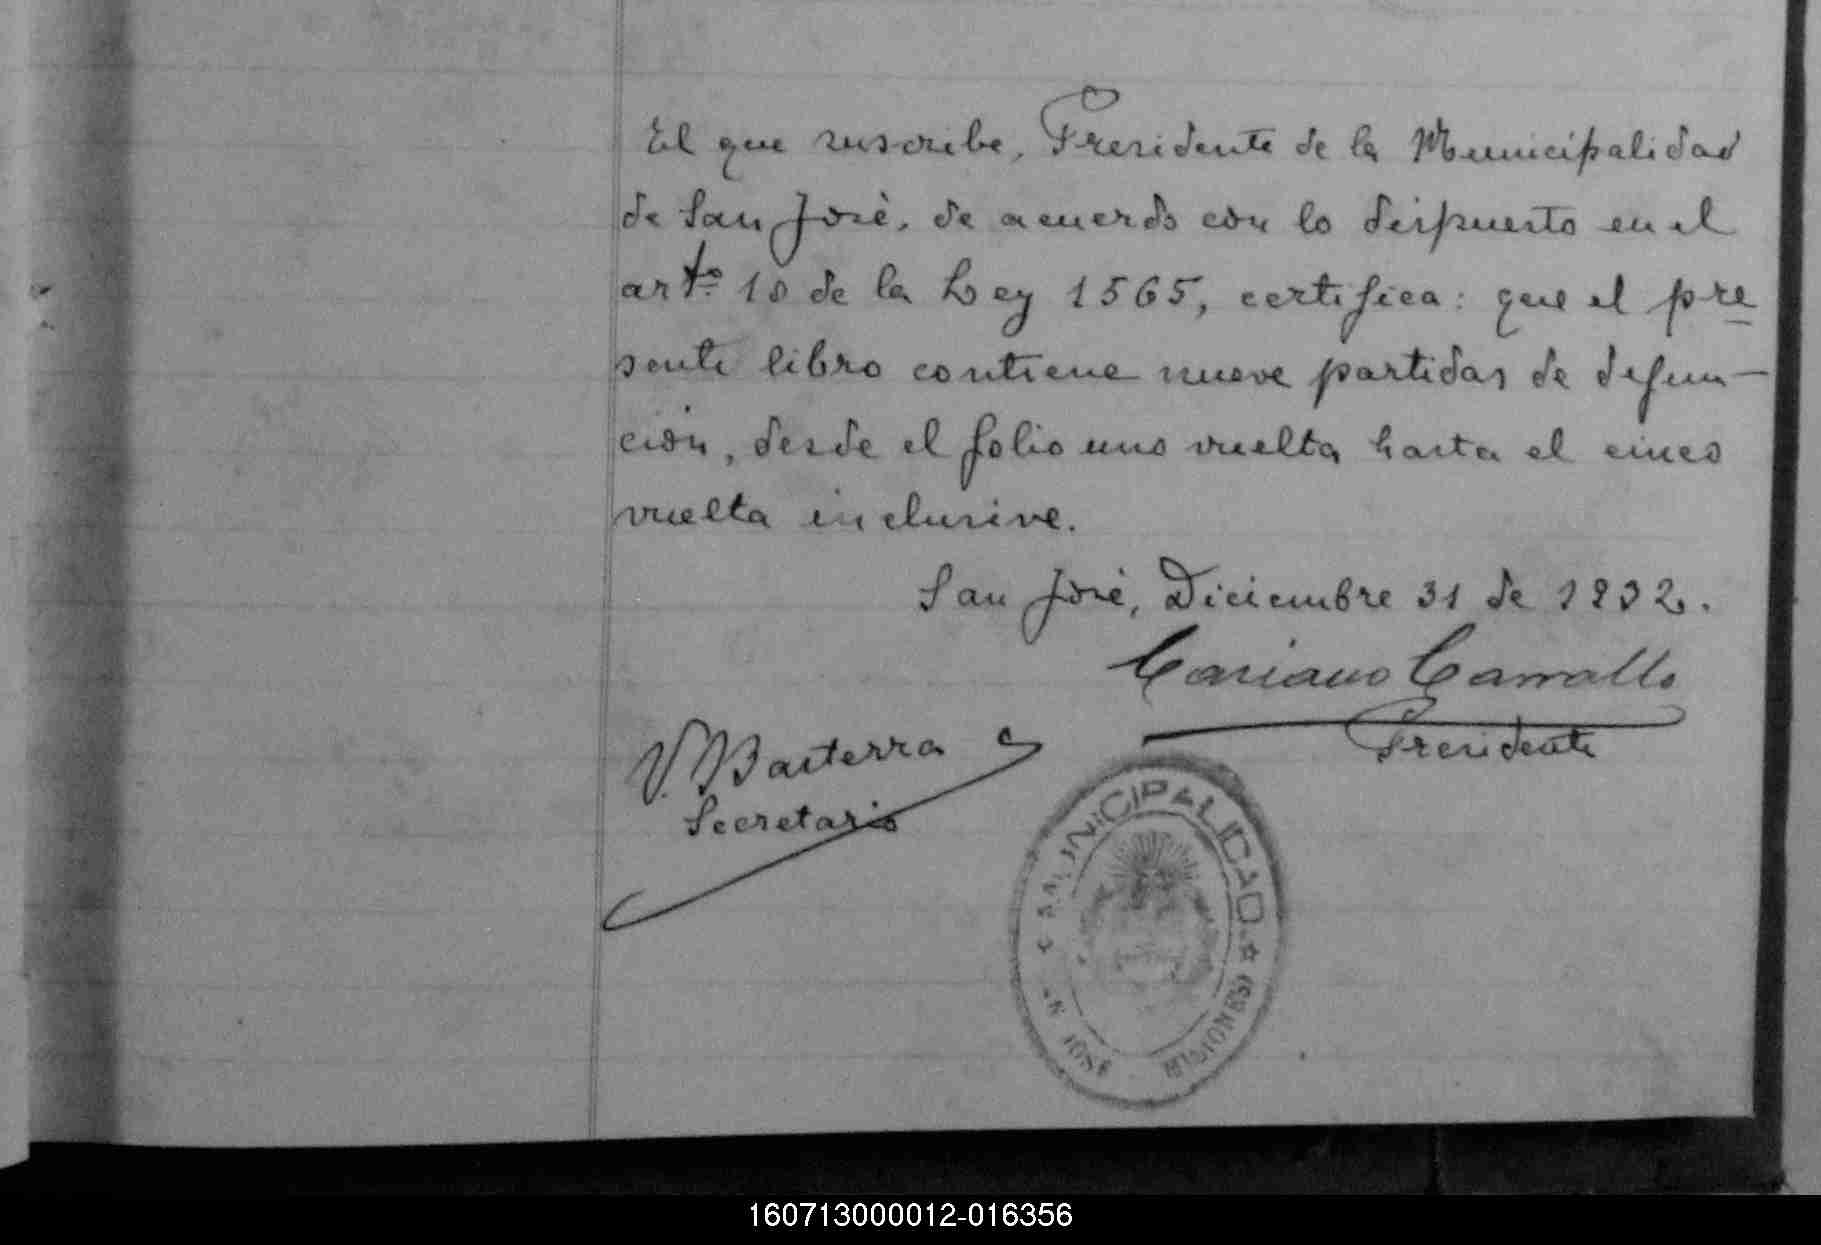 El que suscribe, Presidente de la Municipalidad
de San José, de acuerdo con lo dispuesto en el
artº 18 de la Ley 1565, certifica: que el pre
sente libro contiene nueve partidas de defun-
ción, desde el folio uno vuelta hasta el cinco
vuelta inclusive.
San José, Diciembre 31 de 1932.
Presidente
V. Basterra
Secretario
MUNICIPALIDAD
JOSÉ
MISIONES
160713000012-016356